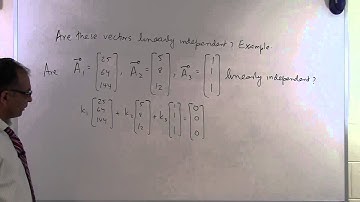 Are these vectors linearly independent? Example.
Are A₁ = [25 64 144], A₂ = [5 8 12], A₃ = [1 1 1] linearly independent?
k₁ [25 64 144] + k₂ [5 8 12] + k₃ [1 1 1] = [0 0 0]